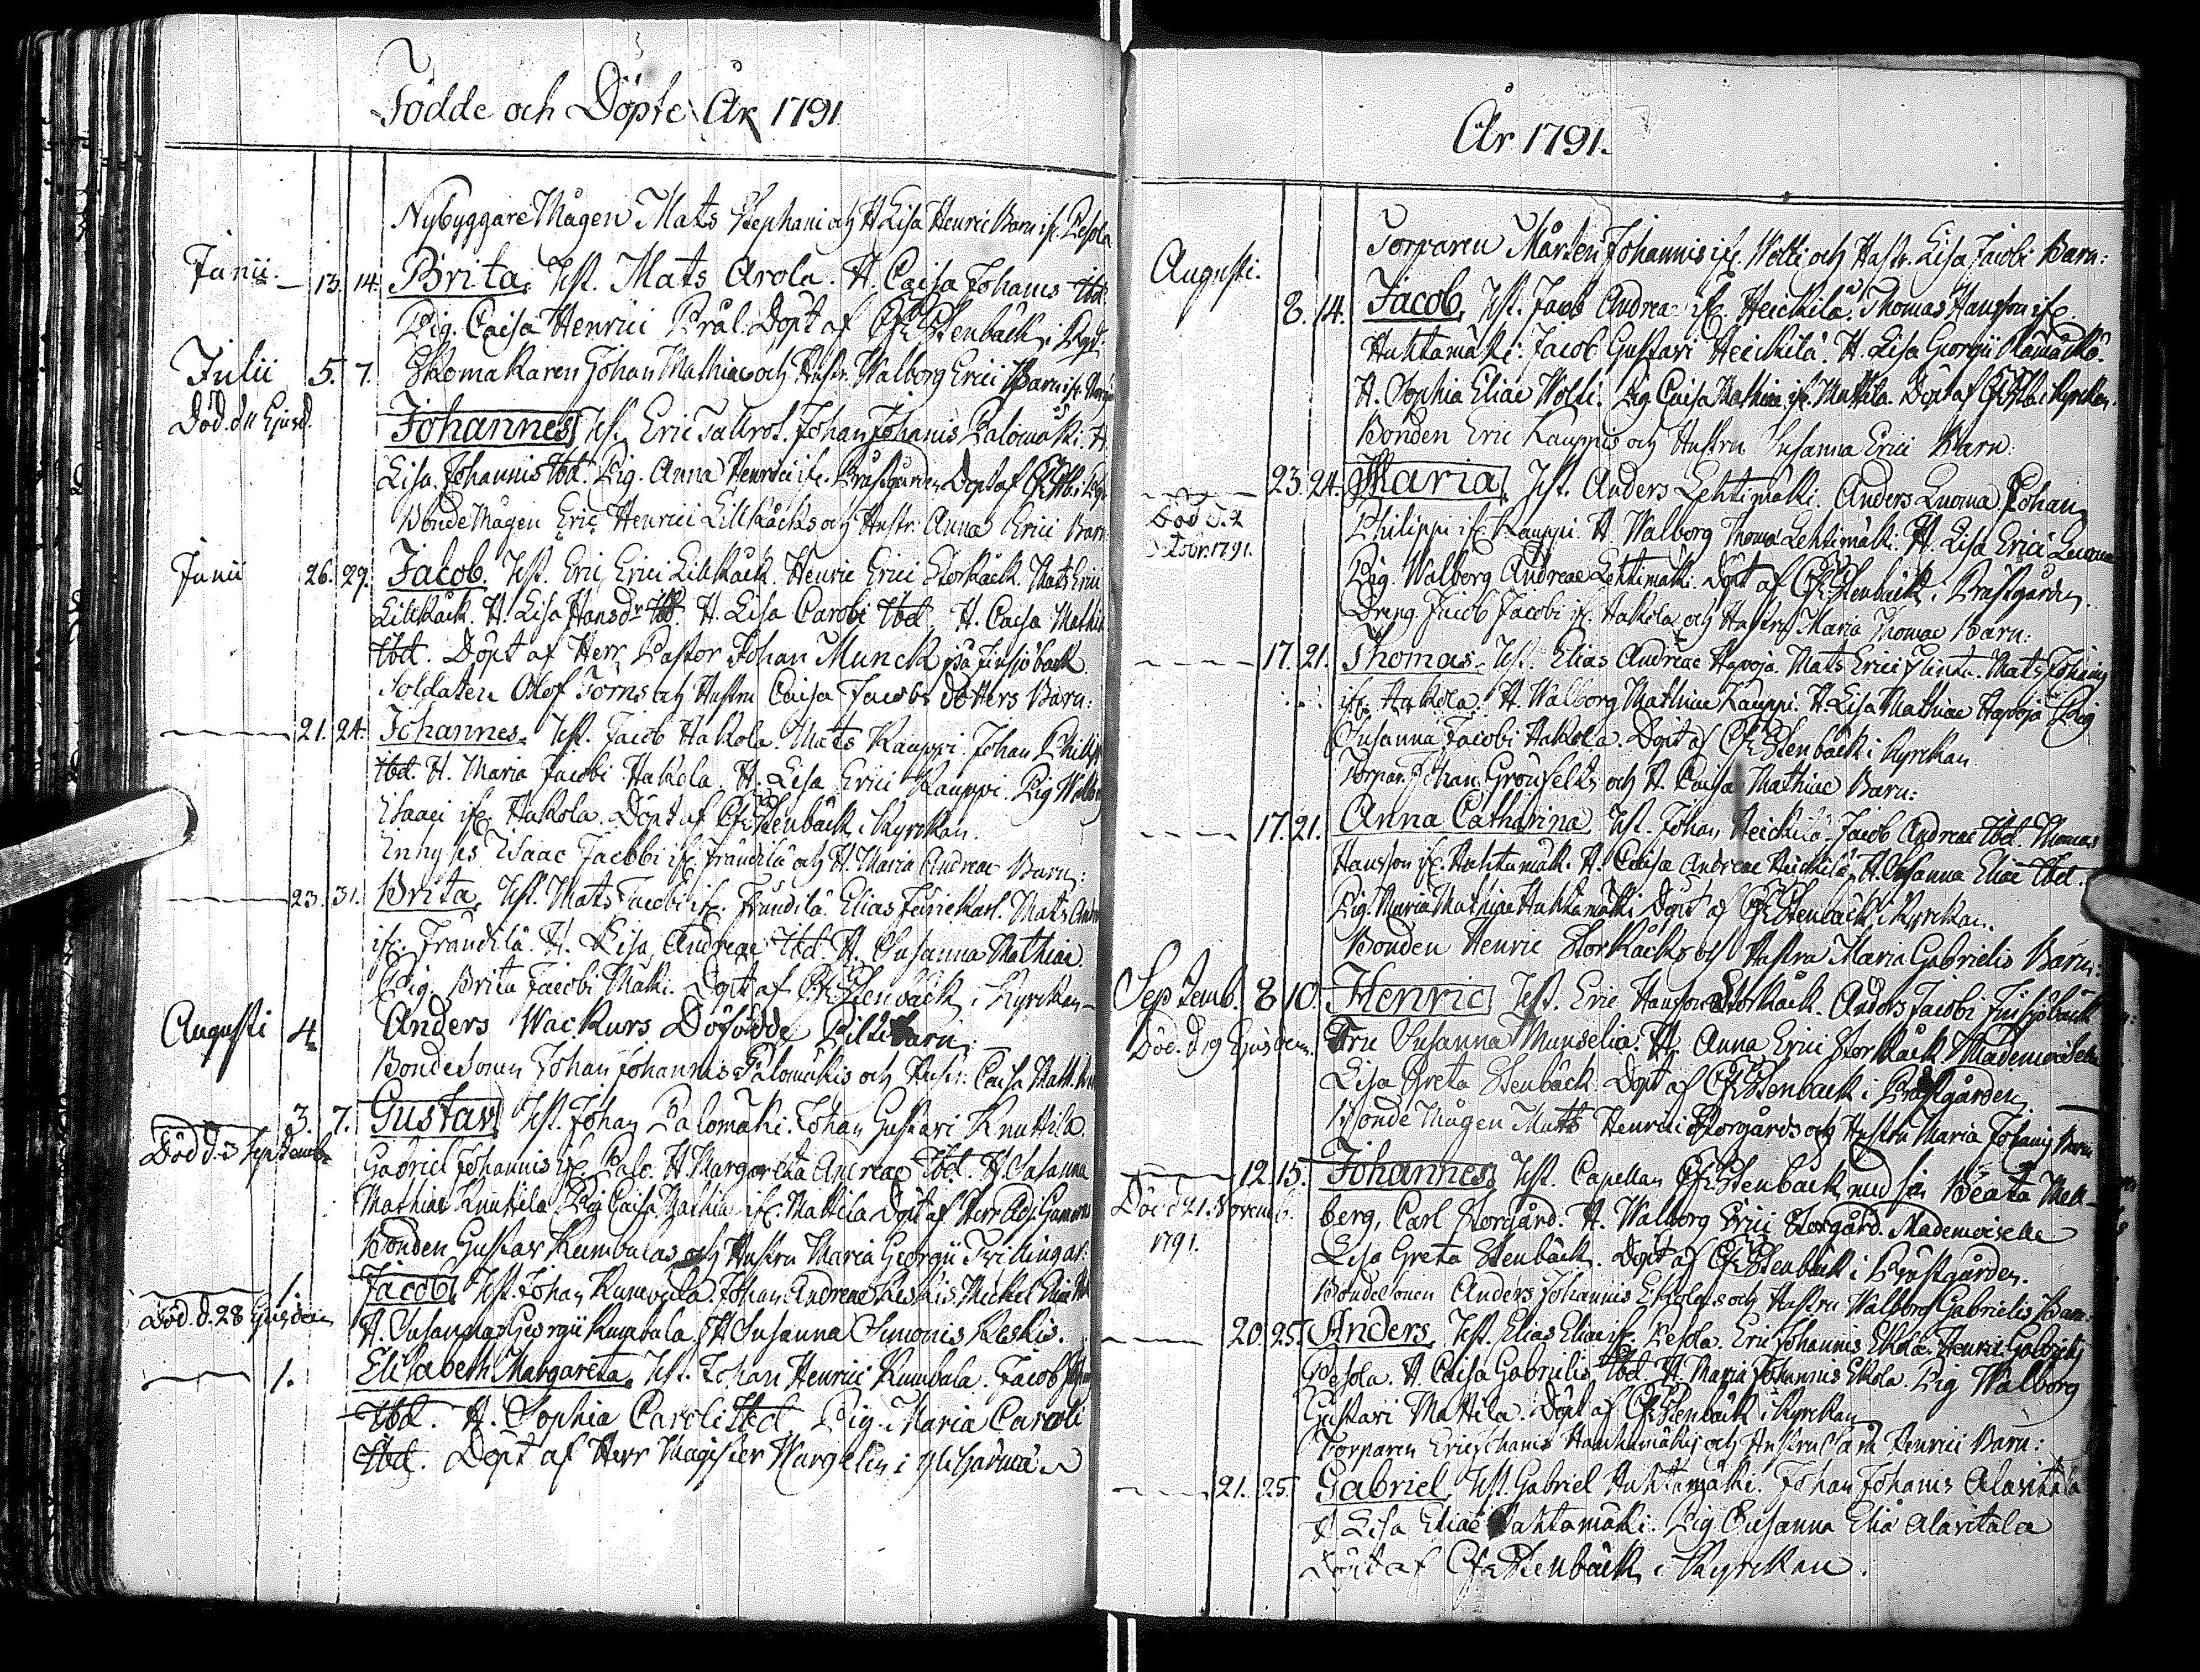 Födde och Döpte År 1791
Nybyggare Mågen Mats Stephani och H. Lisa Henric Barn if. Pesola
Junii. 13. 14. Brita. Test. Mats Arola. H. Caisa Johanis Ibd.
Pig. Caisa Henrici Döpt af CFR Stenbäck i
Julii 5. 7. Skomakaren Johan Mathiae och Hustr. Walborg Erici Barn if.
Död. d. 11 Ejusd.
Johannes Test. Eric Johan Johanis Palomäki. H.
Lisa Johannis Ibd. Pig. Anna Henrici if. Prästgården Döpt af
Bonde Mågen Eric Henrici Lillkäcks och Hustr: Anna Erici Barn
Junii 26. 29. Jacob. Test. Eric Erici Lillkäck. Henric Erici Storkäck. Mats Erici
Lillkäck. H. Lisa Hansdr Ibd. H. Lisa Caroli Ibd. H. Caisa Mathiae
Ibd. Döpt af Herr Pastor Johan Munck på Finsjöback
Soldaten Olof Törns och Hustru Caisa Jacobs dotters Barn:
21. 24. Johannes. Test. Jacob Hakola. Mats Kauppi. Johan Philip
Ibd. H. Maria Jacobi Hakola. H. Lisa Erici Kauppi. Pig Walborg
Isaaci if. Hakola. Döpt af CFR Stenbäck i Kyrckan.
Inhyses Isaac Jacobi if. Frändilä och H. Maria Andreae Barn:
23. 31. Brita. Test. Mats Jacobi if. Frändilä. Elias Mats Andr
if. Frändilä. H. Lisa Andreae Ibd. H. Susanna Mathiae.
Pig. Brita Jacobi Mäki. Döpt af CFR Stenbäck i Kyrckan
Augusti 4. Anders Wackurs Döfödde Piltebarn:
Bondesonen Johan Johannis Palomäkis och Hustr: Caisa Math.
3. 7. Gustav Test. Johan Palomäki. Johan Gustavi Knuttila.
Död d. 3 Septembr
Gabriel Johannis if. Palo. H. Margareta Andreae Ibd. H. Susanna
Mathiae Knuttila. Pig Caisa Mathiae if. Mattila Döpt af Herr Adj.
Bonden Gustav Kumbulas och Hustru Maria Georgii
1. Jacob Test. Johan Kumbula. Johan Andreae Keskis. Michel
Död. d. 28 Ejusdem
H. Susanna Georgii Kumbula. H. Susanna Simonis Keskis.
1. Elisabeth Margareta. Test. Johan Henrici Kumbala. Jacob
Ibd. H. Sophia Caroli Ibd. Pig. Maria Caroli
Ibd. Döpt af Herr Magister Wargelin i Ylihärmä
År 1791.
Torparen Mårten Johannis if. Wolti och Hustr. Lisa Jacobi Barn:
Augusti.
8. 14. Jacob, Test. Jacob Andreae if. Heickilä. Thomas Hansson if.
Huhtamäki. Jacob Gustavi Heickilä. H. Lisa Georgii
H. Sophia Eliae Wolti. Pig Caisa Mathiae if. Mattila. Döpt af i Kyrckan.
Bonden Eric Kauppis och Hustru Susanna Erici Barn:
23. 24. Maria, Test. Anders Lehtimäki. Anders Luoma. Johan
Död d. 2 1791.
Philippi if. Kauppi. H. Walborg Thomae Lehtimäki. H. Lisa Erici Luoma
Pig. Walborg Andreae Lehtimäki. Döpt af CFR Stenbäck i Prästgården.
Dreng. Jacob Jacobi if. Hakola och Hustru Maria Thomae Barn:
17. 21. Thomas. Test. Elias Andreae Hapoja. Mats Erici Mats Johanis
if. Hakola. H. Walborg Mathiae Kauppi. H. Lisa Mathiae Hapoja. Pig
Susanna Jacobi Hakola. Döpt af CFR Stenbäck i Kyrckan
Torpar. Johan Grönfelts och H. Caisa Mathiae Barn:
17. 21. Anna Catharina. Test. Johan Heickilä. Jacob Andreae Ibd. Thomas
Hansson if. Huhtamäk. H. Caisa Andreae Heickilä. H. Susanna Eliae Ibd.
Pig. Maria Mathiae Huhtamäki Döpt af CFR Stenbäck i Kyrckan.
Bonden Henric Storkäcks och Hustru Maria Gabrielis Barn:
Septemb. 8. 10. Henric Test. Eric Hansson Storkäck. Anders Jacobi Finsjöback
Död. d. 19 Ejusdem.
Fru Susanna Munselia. H. Anna Erici Storkäck. Mademoiselle
Lisa Greta Stenbäck. Döpt af CFR Stenback i Prästgården
Bonde Mågen Matts Henrici Storgårds och Hustru Maria Johanis Barn
12. 15. Johannes. Test. Capellan CFR Stenback med sin Beata
Död d 21. Novemb. 1791.
berg, Carl Storgård. H. Walborg Erici Storgård. Mademoiselle
Lisa Greta Stenbäck. Döpt af CFR Stenbäck i Prästgården.
Bondesonen Anders Johannis Ekolas och Hustru Walborg Gabrielis Barn:
20. 25. Anders. Test. Elias Eliae if. Pesola. Eric Johannis Ekola. Henric Gabrielis
Pesola. H. Caisa Gabrielis Ibd. H. Maria Johannis Ekola. Pig Walborg
Gustavi Mattila. Döpt af CFR Stenbäck i Kyrckan
Torparen Eric Johanis Huhtamäkis och Hustru Sara Henrici Barn:
21. 25. Gabriel. Test. Gabriel Huhtamäki. Johan Johanis Alavitala
H Lisa Eliae Huhtamäki. Pig Susanna Eliae Alavitala
Döpt af CFR Stenbäck i Kyrckan.